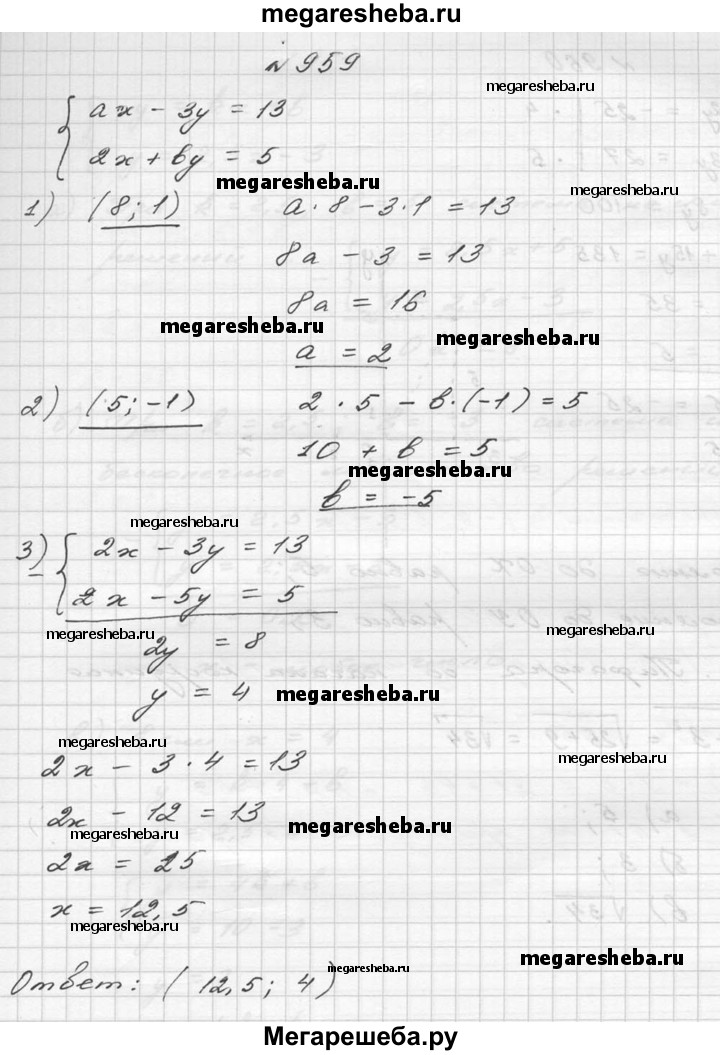 megaresheba.ru
№ 959
megaresheba.ru
ax - 3y = 13
2x + by = 5
megaresheba.ru
megaresheba.ru
1) (8; 1) a · 8 - 3 · 1 = 13
8a - 3 = 13
8a = 16
megaresheba.ru
megaresheba.ru
a = 2
2) (5; -1) 2 · 5 - b · (-1) = 5
10 + b = 5
megaresheba.ru
b = -5
megaresheba.ru
3) 2x - 3y = 13
2x - 5y = 5
megaresheba.ru
megaresheba.ru
2y = 8
y = 4
megaresheba.ru
megaresheba.ru
2x - 3 · 4 = 13
megaresheba.ru
2x - 12 = 13
megaresheba.ru
megaresheba.ru
2x = 25
x = 12,5
megaresheba.ru
megaresheba.ru
megaresheba.ru
Ответ: (12,5; 4)
Мегарешеба.ру